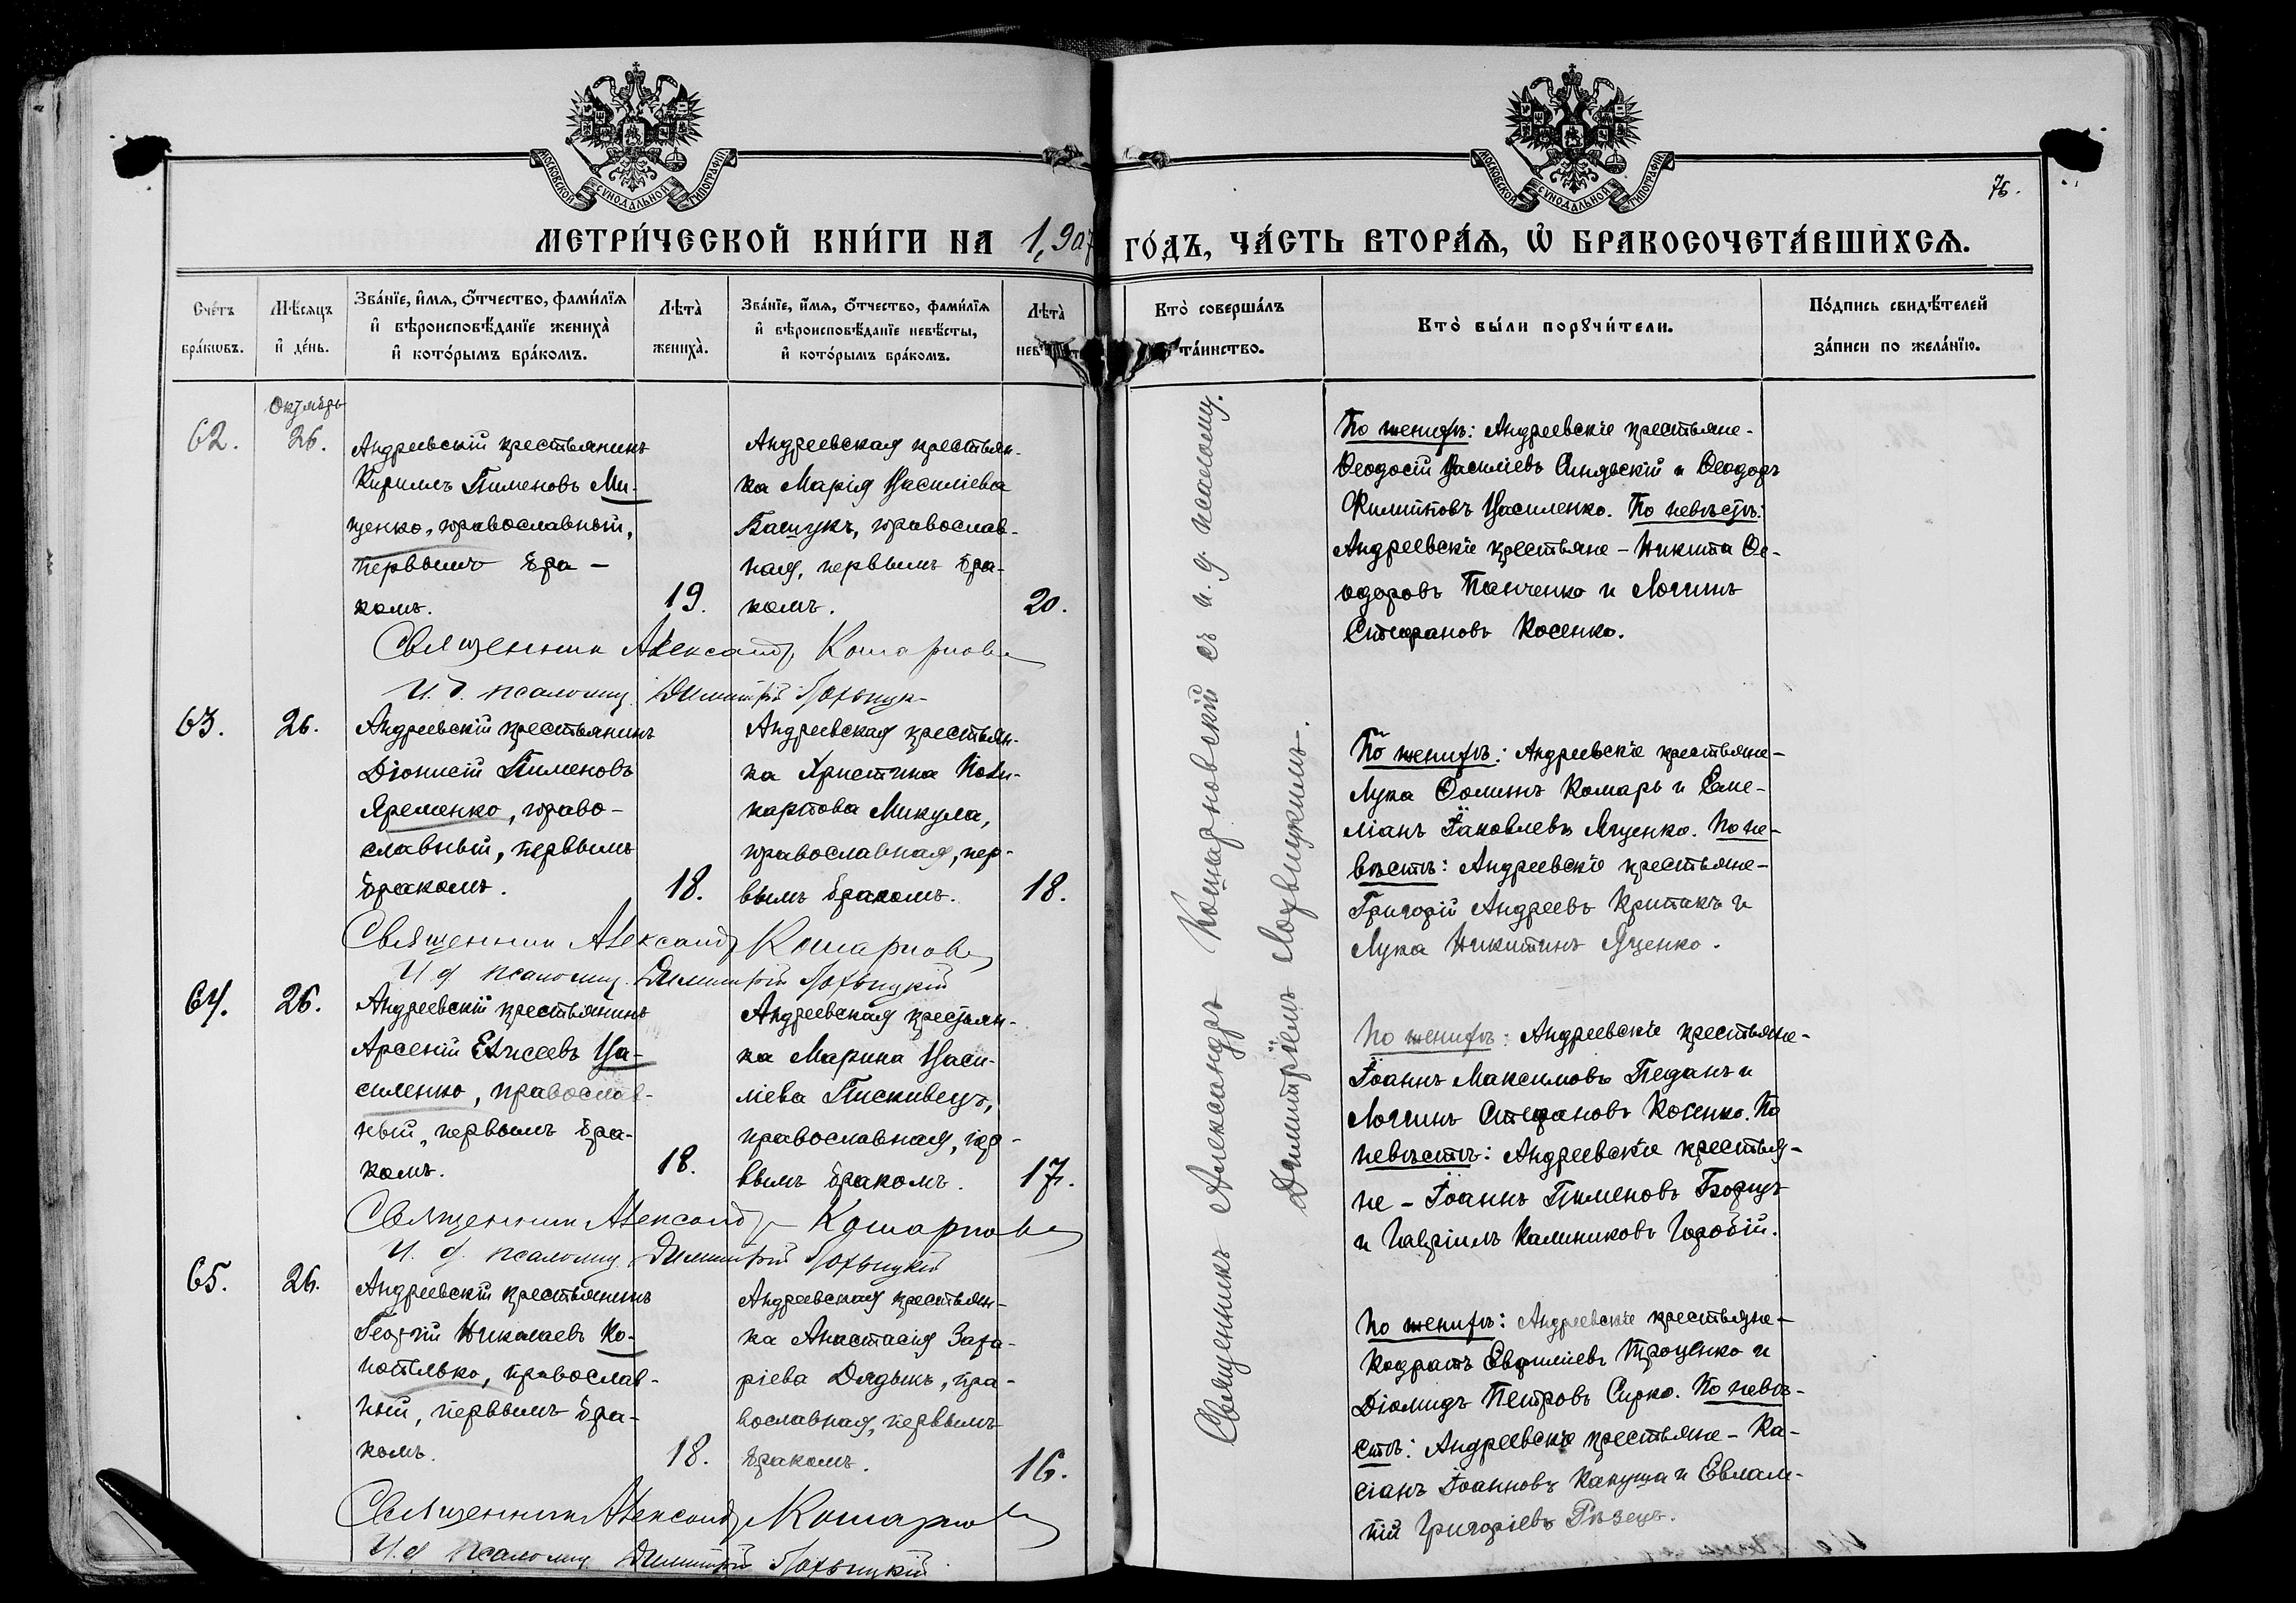 МОСКОВСКОЙ СѴНОДАЛЬНОЙ ТИПОГРАФІИ
МОСКОВСКОЙ СѴНОДАЛЬНОЙ ТИПОГРАФІИ
76.
МЕТРИ́ЧЕСКОЙ КНИ́ГИ НА 1,907 ГО́ДЪ, ЧА́СТЬ ВТОРА́Ѧ, Ѽ БРАКОСОЧЕТА́ВШИХСѦ.
Сче́тъ
бра́кѡвъ.
Мѣ́сѧцъ
и҆ де́нь.
Зва́нїе, и҆́мѧ, ѻ҆́тчество, фами́лїѧ
и҆ вѣроисповѣ́данїе жениха̀
и҆ кото́рымъ бра́комъ.
Лѣта̀
жениха̀.
Зва́нїе, и҆́мѧ, ѻ҆́тчество, фами́лїѧ
и҆ вѣроисповѣ́данїе невѣ́сты,
и҆ кото́рымъ бра́комъ.
Лѣта̀
Кто̀ соверша́лъ
та́инство.
Кто̀ бы́ли порꙋчи́тели.
По́дпись свидѣ́телей
за́писи по жела́нїю.
Октябрь
62.
26.
Андреевскій крестьянинъ
Кириллъ Пименовъ Ми-
щенко, православный,
первымъ бра-
комъ.
19.
Андреевская крестьян-
ка Марія Василіева
Башукъ, православ-
ная, первымъ бра-
комъ.
20.
По женихѣ: Андреевскіе крестьяне-
Ѳеодосій Василіевъ и Ѳеодоръ
Филипповъ Василенко. По невѣстѣ:
Андреевскіе крестьяне - Никита Ѳе-
одоровъ Панченко и Логгинъ
Стефановъ Косенко.
Священник Александр Кошарнов
И. д. псаломщ. Димитрій
63.
26.
Андреевскій крестьянинъ
Діонисій Пименовъ
Яременко, право-
славный, первымъ
бракомъ.
18.
Андреевская крестьян-
ка Христина Поли-
карпова Микула,
православная, пер-
вымъ бракомъ.
18.
По женихѣ: Андреевскіе крестьяне-
Лука Ѳоминъ Комаръ и Еме-
ліанъ Іаковлевъ Яценко. По не-
вѣстѣ: Андреевскіе крестьяне-
Григорій Андреевъ Критакъ и
Лука Никитинъ Яценко.
Священник Александр Кошарнов
И д псаломщ. Димитрій
64.
26.
Андреевскій крестьянинъ
Арсеній Елисеевъ Ва-
силенко, православ-
ный, первымъ бра-
комъ.
18.
Андреевская крестьян-
ка Марина Васи-
ліева Пискивецъ,
православная, пер-
вымъ бракомъ.
17.
По женихѣ: Андреевскіе крестьяне-
Іоаннъ Максимовъ Педанъ и
Логгинъ Стефановъ Косенко. По
невѣстѣ: Андреевскіе крестья-
не - Іоаннъ Пименовъ
и Гавріилъ Калиниковъ Горобій.
Священник Александр Кошарнов
И. д. псаломщ. Димитрій
65.
26.
Андреевскій крестьянинъ
Георгій Николаевъ Ко-
нотилько, православ-
ный, первымъ бра-
комъ.
18.
Андреевская крестьян-
ка Анастасія Заха-
ріева Дядыкъ, пра-
вославная, первымъ
бракомъ.
16.
По женихѣ: Андреевскіе крестьяне-
Кодратъ Евфиміевъ Троценко и
Діомидъ Петровъ Сирко. По невѣ-
стѣ: Андреевскіе крестьяне - Ка-
сіанъ Іоанновъ Капуша и Евлам-
пій Григоріевъ
Священник Александр Кошарнов
И. д псаломщ Димитрій
Священникъ Александръ Кошарновскій съ и. д. псаломщ.
Димитріемъ